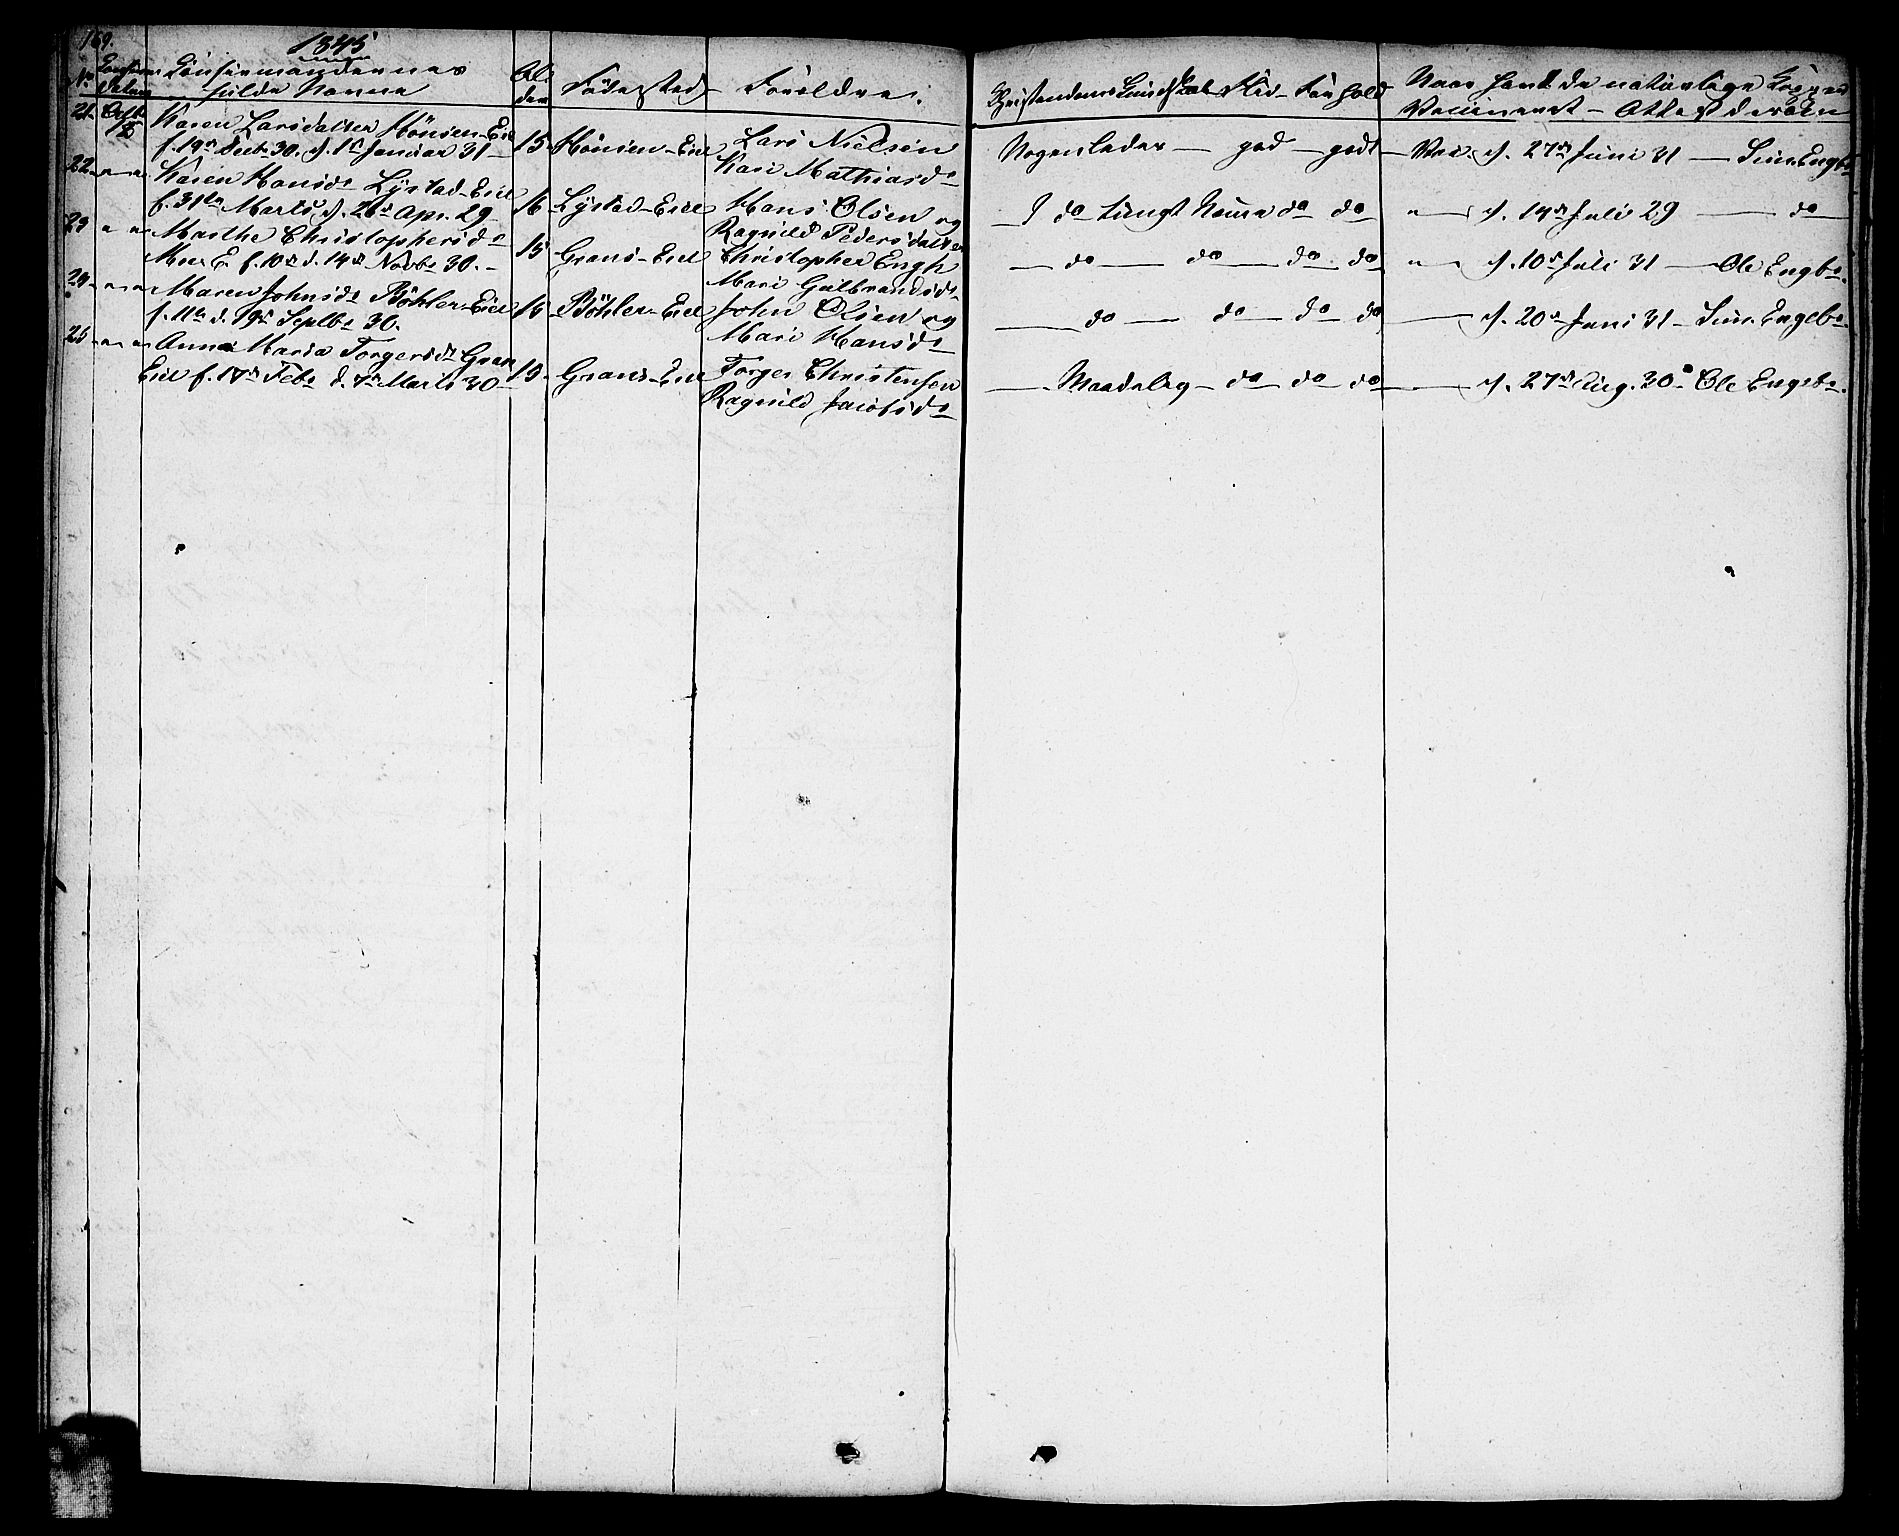 169.
1845
No Confirm. Datum Confirmandernes fulde Navne Al- der Födested Forældre. Christendoms Kundskab Flid - Forhold Naar havt de naturlige Kopper Vaccineret - Attest derom
21. Octb. 12 Karen Larsdatter Hönsen-Eie
f. 19de Decb. 30. d. 1ste Januar 31 - 15 - Hönsen-Eie Lars Nielsen
Kari Mathiasd. Nogenledes - god - godt - Vac. d. 27de Juni 31 - Sim. Engb.
22 - " - " - Karen Hansd. Lystad-Eie
f. 31te Marts d. 26de Apr. 29 16 - Lystad-Eie Hans Olsen og
Ragnild Pedersdatter - I do tungt Nemme do do " - d. 14de Juli 29 - do
23 - " " Marthe Christophersd.
f. 10de d. 14de Novb. 30. - 15 Grans-Eie Christopher Engh
Mari Gulbrandsd. - do - do - do do " - d. 10de Juli 31 - Ole Engb.
24 - " - " - Maren Johnsd. Böhler-Eie
f. 11te d. 19de Septb. 30. 15 - Böhler-Eie John Olsen og
Mari Hansd. - do - do - do do - d. 20de Juni 31 - Sim. Engeb.
25 - " - " - Anne Maria Torgersd. Gran
Eie f. 17de Feb. d. 7de Marts 30 - 15 - Grans-Eie Torger Christensen
Ragnild Jacobsd. - Maadelig - do - do do - d. 27de Aug. 30 - Ole Engeb.